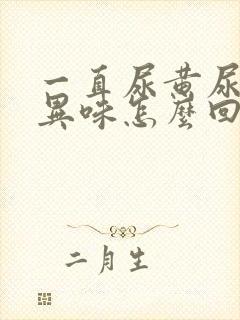 一直尿黄尿
異味怎麼回
二月生